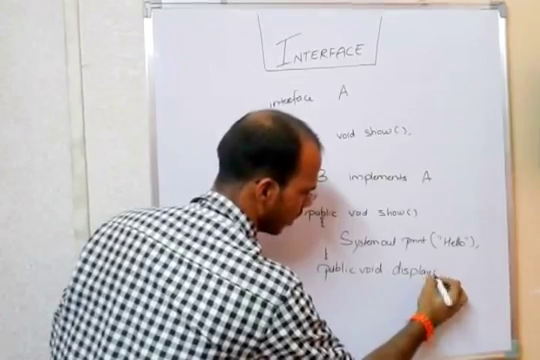 INTERFACE
interface A
void show();
B implements A
public void show()
System.out.print("Hello");
public void display